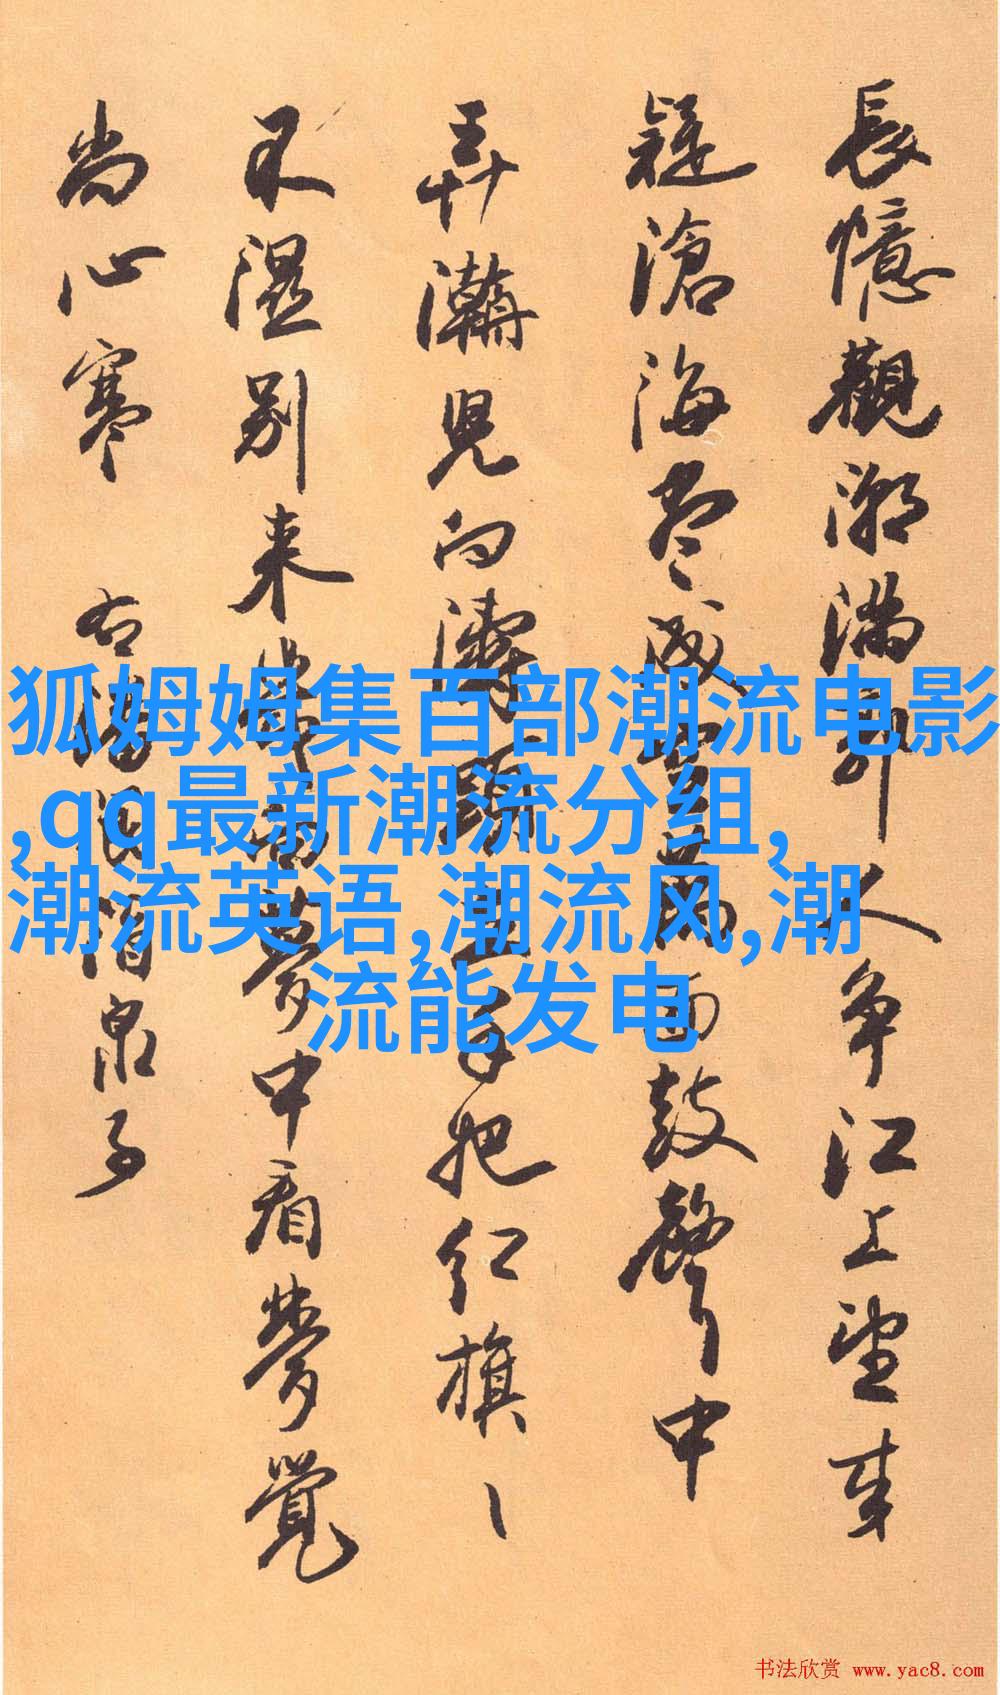 長憶觀潮滿郭人争江上望来
疑滄海尽成空萬面鼓聲中
弄潮兒向濤頭立手把红旗ヽ
不湿别来夢中看夢覺
尚心寒 右潘阆酒泉子
狐姆姆集百部潮流电影
,qq最新潮流分组,
潮流英语,潮流风,潮
流能发电
书法欣赏 www.yac8.com